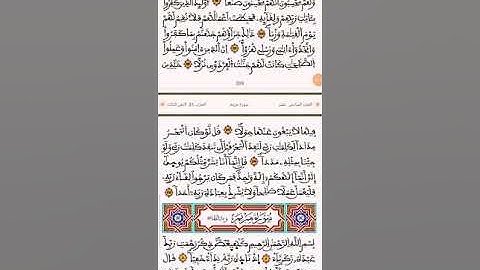 وهم يحسبون أنهم يحسنون صنعا أولئك الذين كفروا
بآيات ربهم ولقائه فحبطت أعمالهم فلا نقيم لهم
يوم القيامة وزنا ذلك جزاؤهم جهنم بما كفروا
واتخذوا ءاياتي ورسلي هزؤا إن الذين ءامنوا وعملوا
الصالحات كانت لهم جنات الفردوس نزلا خالدين
الجزء السادس عشر
سورة مريم
الحزب 31
فيها لا يبغون عنها حولا قل لو كان البحر
مدادا لكلمات ربي لنفد البحر قبل أن تنفد كلمات ربي ولو
جئنا بمثله مددا قل إنما أنا بشر مثلكم يوحى
إلي أنما إلهكم إله واحد فمن كان يرجوا لقاء ربه
فليعمل عملا صالحا ولا يشرك بعبادة ربه أحدا
سورة مريم
بسم الله الرحمن الرحيم كهيعص ذكر رحمت ربك
عبده زكرياء إذ نادى ربه نداء خفيا قال